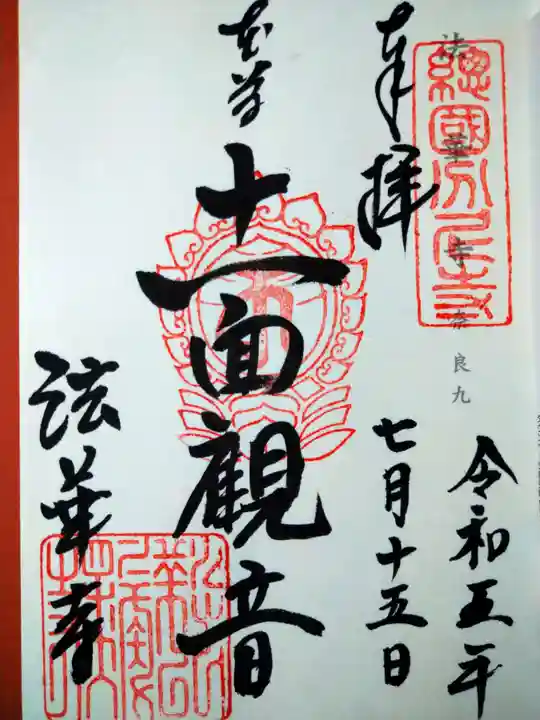 法華寺 奈良九
總國分尼寺
奉拝
令和五年
七月十五日
本尊
十一面観音
法華寺